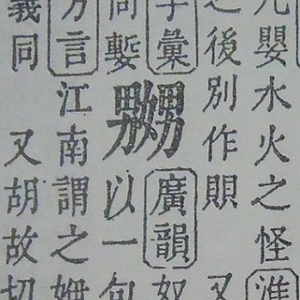 九嬰水火之怪淮
之後別作賏又
字彙
同
嬲
廣韻奴
以一句
方言江南謂之
義同又胡故切